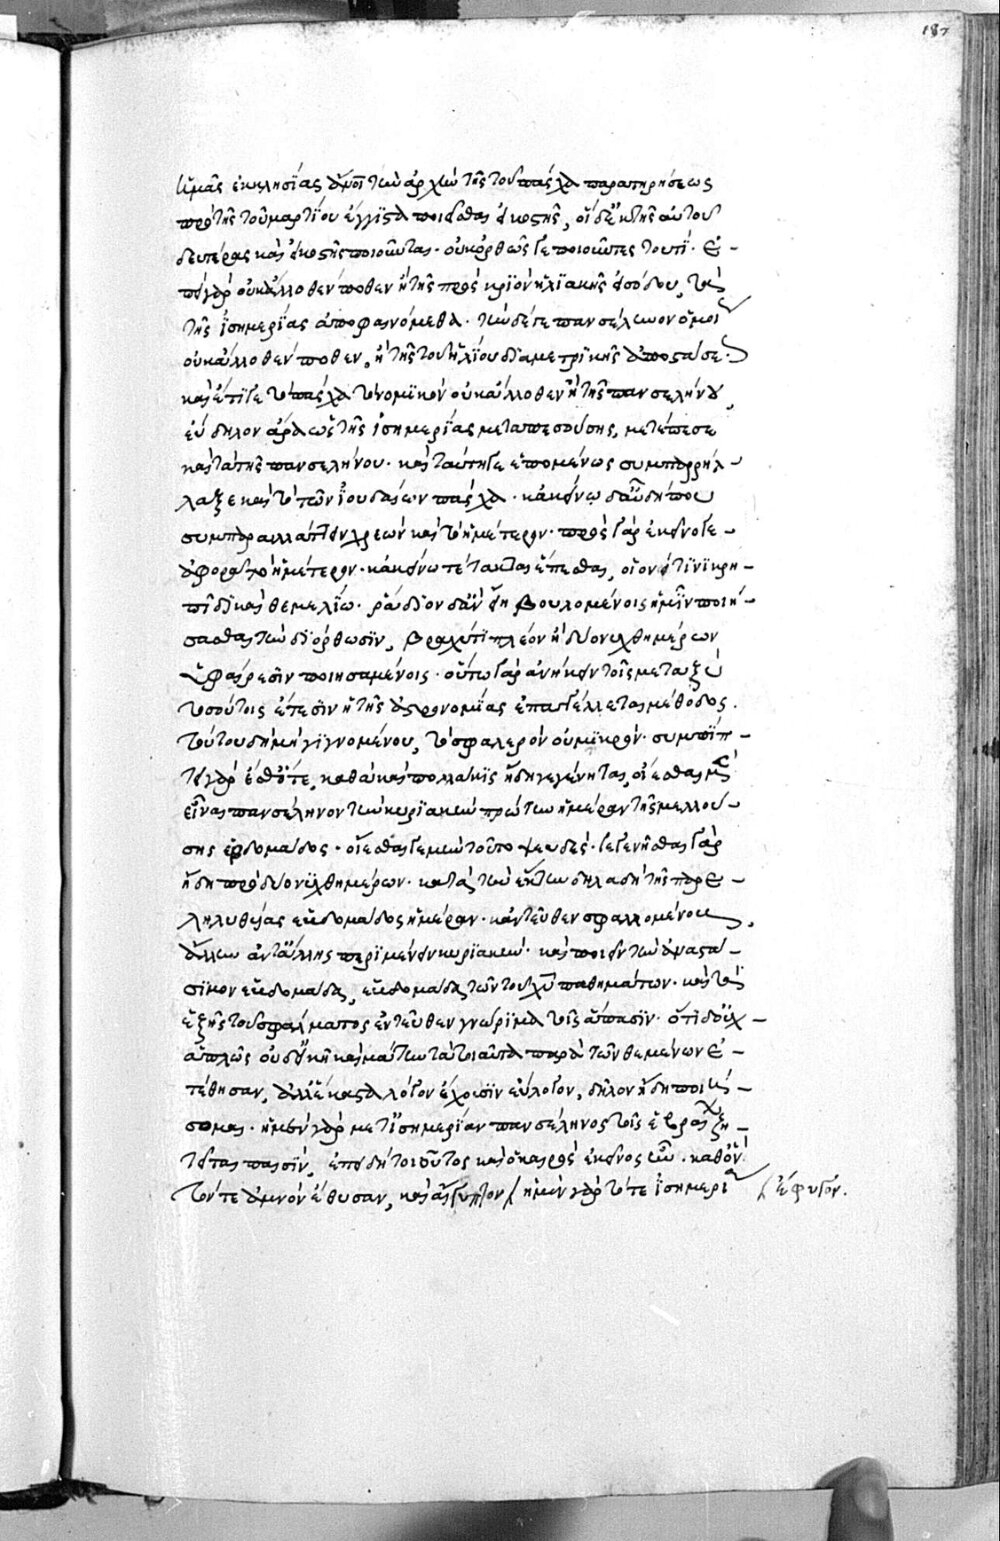 187
ἡμᾶς ἐκκλησίας ἅμα τὴν ἀρχὴν τῆς τοῦ πάσχα παρατηρήσεως
πρὸ τῆς τοῦ μαρτίου ἔγγιστα ποιεῖσθαι εἰκοστῆς, οἱ δὲ ἐκ τῆς αὐτοῦ
δευτέρας καὶ εἰκοστῆς ποιοῦνται· οὐκ ὀρθῶς γε ποιοῦντες τουτί· ἐ-
πεὶ γὰρ οὐκ ἄλλοθεν ποθεν ἢ τῆς πρὸς κριὸν ἡλιακῆς εἰσόδου, τὰ
τῆς ἰσημερίας ἀποφαινόμεθα· τὴν δέ γε πανσέληνον ὅμοι
οὐκ ἄλλοθέν ποθεν, ἢ τῆς τοῦ ἡλίου διαμετρικῆς ἀποστάσε·
καὶ ἔτι γε τὸ πάσχα τὸ νομικὸν οὐκ ἄλλοθεν ἢ τῆς πανσελήνου,
εὔδηλον ἄρα ὡς τῆς ἰσημερίας μεταπεσούσης, μετέπεσε
καὶ τὰ τῆς πανσελήνου· καὶ ταύτῃ γε ἑπομένως συμπαρήλ-
λαξε καὶ τὸ τῶν ἰουδαίων πάσχα· κἀκείνῳ δ' αὖ δήπου
συμπαραλλάττειν χρεὼν καὶ τὸ ἡμέτερον· πρὸς γὰρ ἐκεῖνό γε
ἀφορᾷ τὸ ἡμέτερον· κἀκείνῳ τέτακται ἕπεσθαι, οἷόν τινι κρη-
πῖδι καὶ θεμελίῳ· ῥᾴδιον δ' ἂν εἴη βουλομένοις ἡμῖν ποιή-
σασθαι τὴν διόρθωσιν, βραχύ τι πλέον ἢ δύο νυχθημέρων
ὑφαίρεσιν ποιησαμένοις· οὕτω γὰρ ἀνήκειν τοῖς μεταξὺ
τοσούτοις ἔτεσιν ἡ τῆς ἀστρονομίας ἐπαγγέλλεται μέθοδος.
τούτου δὴ μὴ γιγνομένου, τὸ σφαλερὸν οὐ μικρόν· συμπίπτ-
τει γὰρ ἔσθ' ὅτε, καθὰ καὶ πολλάκις ἤδη γεγένηται, οἴεσθαι μὲν
εἶναι πανσέληνον τὴν κυριακὴν πρώτην ἡμέραν τῆς μελλού-
σης ἑβδομάδος· οἴεσθαι γε μὴν τοῦτο ψευδές· γεγενῆσθαι γὰρ
ἤδη πρὸ δύο νυχθημέρων· κατὰ τὴν ἕκτην δηλαδὴ τῆς παρε-
ληλυθυίας ἑβδομάδος ἡμέραν· κἀντεῦθεν σφαλλομένους,
ἄλλην ἀντ' ἄλλης περιμένειν κυριακήν· καὶ ποιεῖν τὴν ἀναστά-
σιμον ἑβδομάδα, ἑβδομάδα τῶν τοῦ χ(ριστο)ῦ παθημάτων· καὶ τὰ
ἑξῆς τοῦ σφάλματος ἐντεῦθεν γνώριμα τοῖς ἅπασιν· ὅτι δ' οὐχ
ἁπλῶς οὐδ' εἰκῇ καὶ μάτην τὰ τοιαῦτα παρὰ τῶν θεμένων ἐ-
τέθησαν, ἀλλ' ἕκαστα λόγον ἔχουσιν εὔλογον, δῆλον ἤδη ποιή-
σομαι· ἡ μὲν γὰρ μετ' ἰσημερίαν πανσέληνος τοῖς ἑβραίοις ζη-
τεῖται πᾶσιν, ἐπειδήτοι οὗτος καὶ ὁ καιρὸς ἐκεῖνος ἦν· καθ' ὃν
τόν τε ἀμνὸν ἔθυσαν, καὶ αἴγυπτον / ἡ μὲν γὰρ τότε ἰσημερί / ἔφυγον.